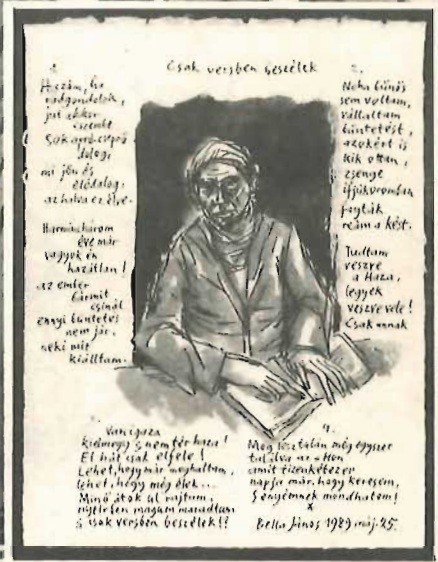 Csak versben beszélek
1.
H
ha
rádgondolok,
jut akkor
eszembe
Sok aprócseprő
dolog,
mi jön és
elődalog,
az halva
Harminchárom
éve már
vagyok én
hazátlan!
az ember
bármit
csinál
ennyi büntetés
nem jár,
neki mit
kiálltam.
2.
Noha bűnös
sem voltam,
vállaltam
büntetést,
azokért is
kik ottan,
zsenge
ifjúkoromban
fogták
reám a kést.
Tudtam
veszve
a Haza,
legyek
veszve vele!
Csak annak
Van igaza
kielmegy s nem tér haza!
El hát csak elfele!
Lehet, hogy már meghaltam,
lehet, hogy még élek...
Minő átok ül rajtum,
magam maradtam
s csak versben beszélek!!
4.
Meg lesz talán még egyszer
találva az a Hon
amit tizenkétezer
napja már, hogy keresem,
s enyémnek mondhatom!
x
Bella János 1989 máj. 25.